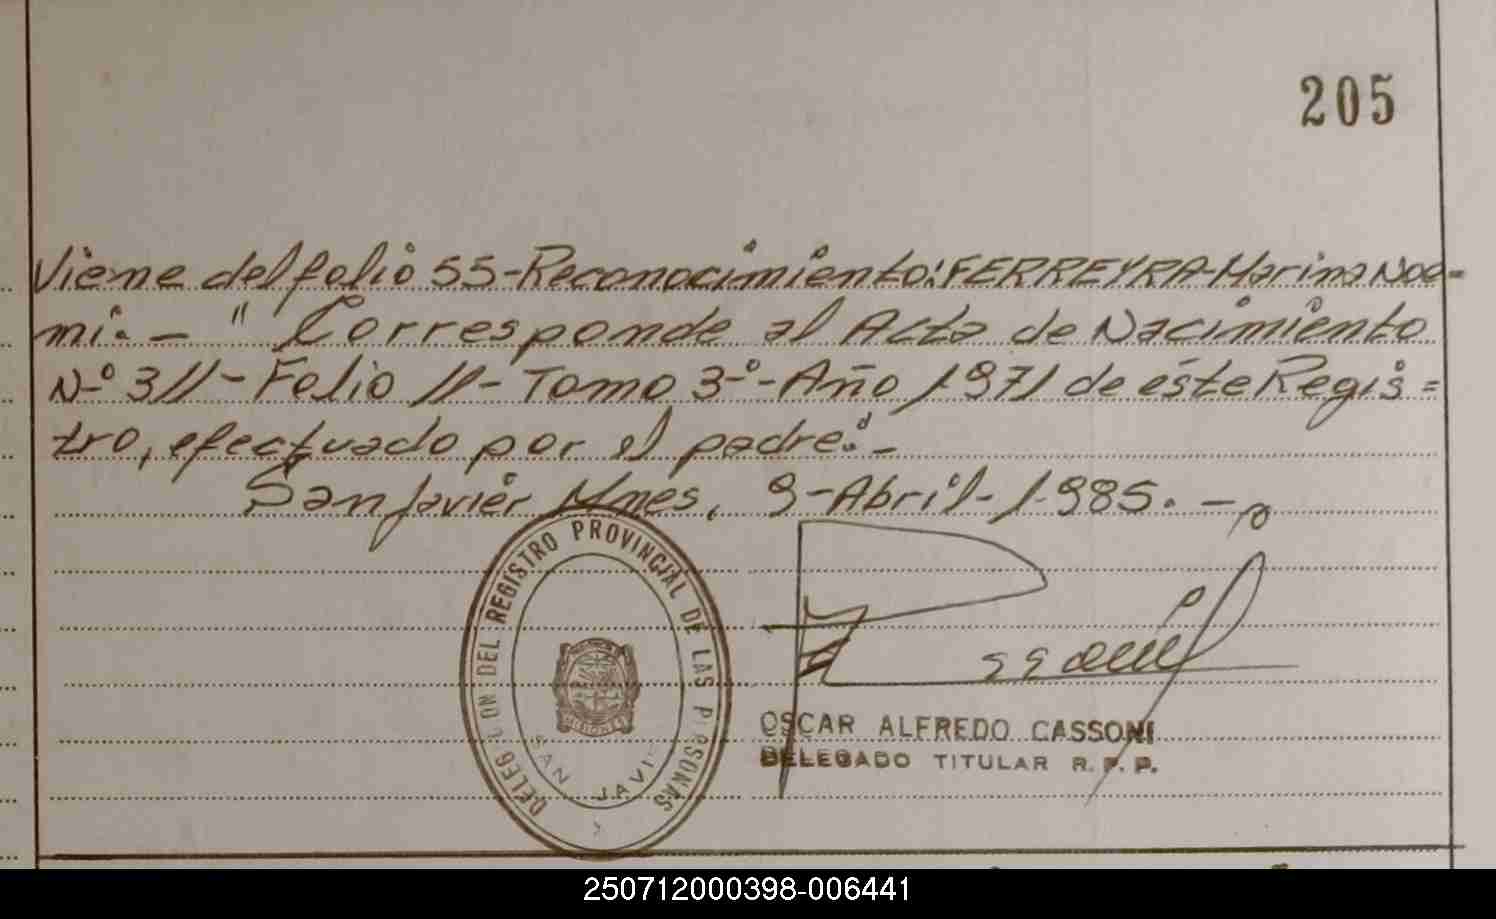 205
Viene del folio 55-Reconocimiento: FERREYRA-Marina Noe=
mi.- " Corresponde al Acta de Nacimiento
N-º 311-Folio 11-Tomo 3-º-Año 1.971 de éste Regis=
tro, efectuado por el padre".-
San Javier Mnes, 9-Abril-1.985.-
DELEGACION DEL REGISTRO PROVINCIAL DE LAS PERSONAS
MISIONES
SAN JAVIER
OSCAR ALFREDO CASSONI
DELEGADO TITULAR R. P. P.
250712000398-006441